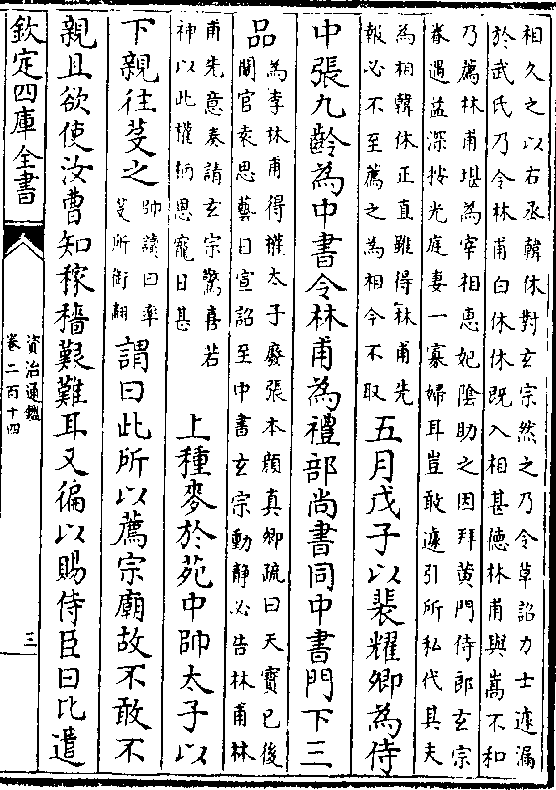 相久之以右丞韓休對玄宗然之乃令草詔力士遽漏
於武氏乃令林甫白休休既入相甚德林甫與嵩不和
乃薦林甫堪為宰相惠妃陰助之因拜黄門侍郎玄宗
眷遇益深按光庭妻一寡婦耳豈敢遽引所私代其夫
為相韓休正直雖得林甫先
報必不至薦之為相今不取
五月戊子以裴耀卿為侍
中張九齡為中書令林甫為禮部尚書同中書門下三
品
為李林甫得權太子廢張本顔真卿疏曰天寶已後
閹官袁思藝日宣詔至中書玄宗動静必告林甫林
甫先意奏請玄宗驚喜若
神以此權柄恩寵日甚
上種麥於苑中帥太子以
下親往芟之
帥讀曰率
芟所銜翻
謂曰此所以薦宗廟故不敢不
親且欲使汝曹知稼穡艱難耳又徧以賜侍臣曰比遣
欽定四庫全書
資治通鑑
卷二百十四
三